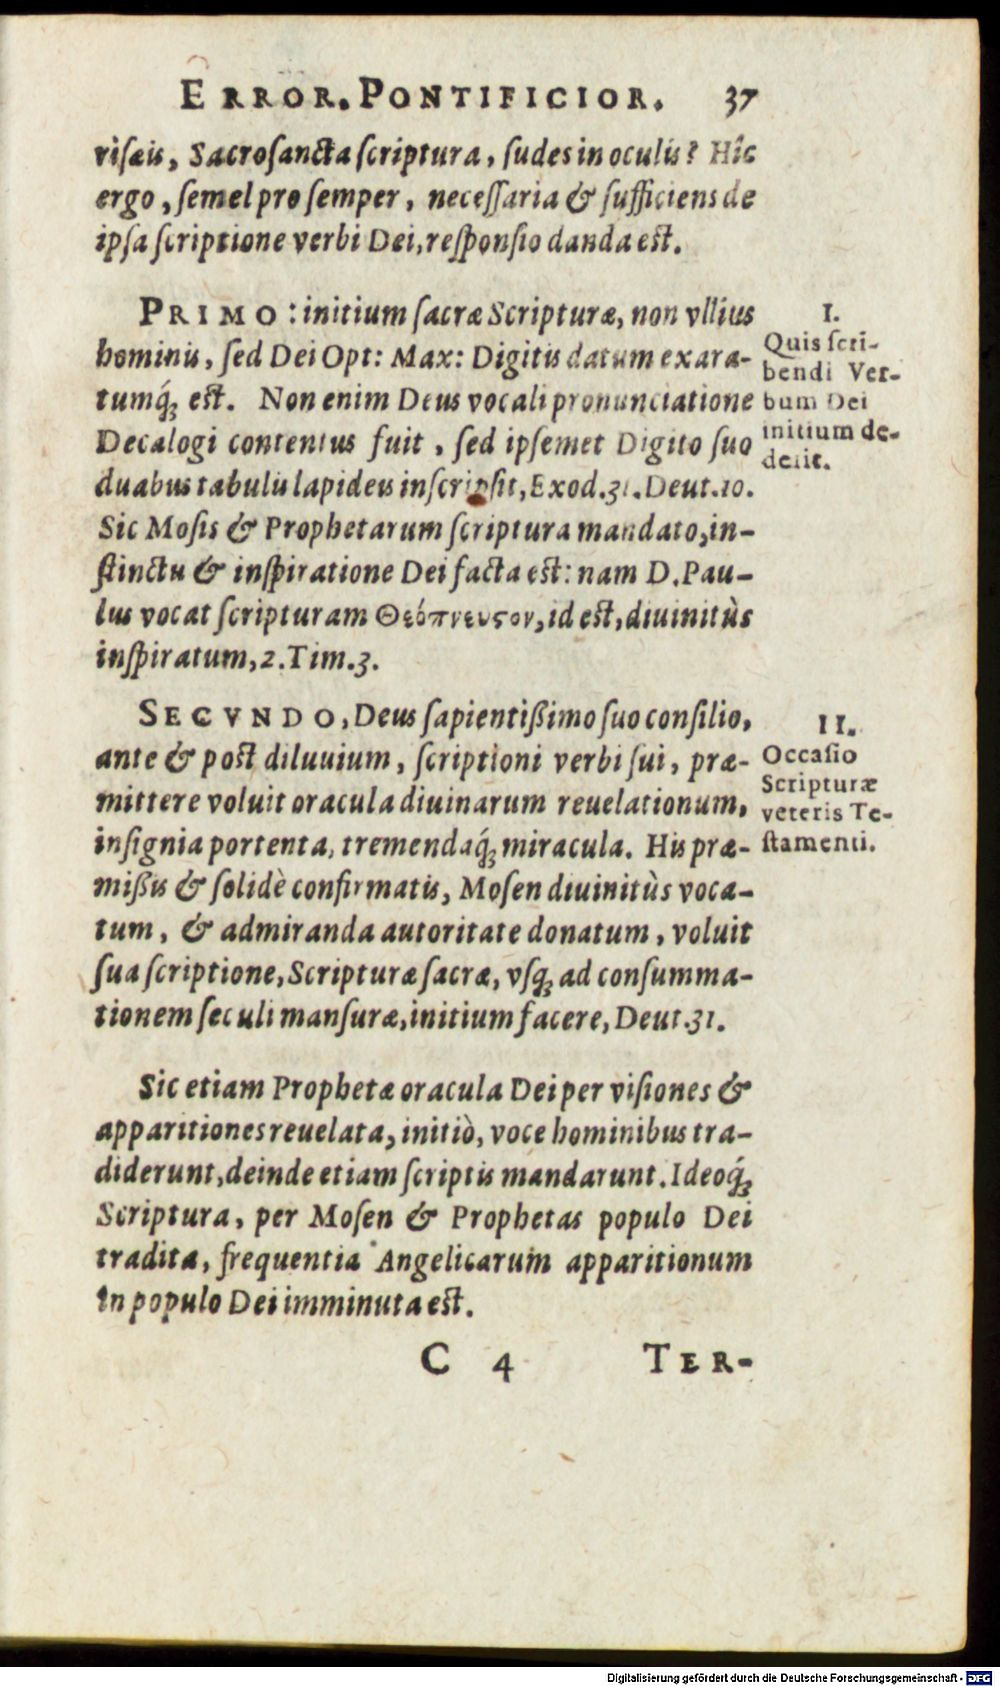 ERROR. PONTIFICIOR. 37
risæis, Sacrosancta scriptura, sudes in oculis? Hîc
ergo, semel pro semper, necessaria & sufficiens de
ipsa scriptione verbi Dei, responsio danda est.
PRIMO: initium sacræ Scripturæ, non vllius
hominis, sed Dei Opt: Max: Digitis datum exara-
tumq́; est. Non enim Deus vocali pronunciatione
Decalogi contentus fuit, sed ipsemet Digito suo
duabus tabulis lapideis inscripsit, Exod.31. Deut.10.
Sic Mosis & Prophetarum scriptura mandato, in-
stinctu & inspiratione Dei facta est: nam D. Pau-
lus vocat scripturam Θεόπνευςον, id est, diuinitùs
inspiratum, 2. Tim. 3.
I.
Quis scri-
bendi Ver-
bum Dei
initium de-
derit.
SECVNDO, Deus sapientißimo suo consilio,
ante & post diluuium, scriptioni verbi sui, præ-
mittere voluit oracula diuinarum reuelationum,
insignia portenta, tremendaq́; miracula. His præ-
mißis & solidè confirmatis, Mosen diuinitùs voca-
tum, & admiranda autoritate donatum, voluit
sua scriptione, Scripturæ sacræ, vsq; ad consumma-
tionem seculi mansuræ, initium facere, Deut.31.
II.
Occasio
Scripturæ
veteris Te-
stamenti.
Sic etiam Prophetæ oracula Dei per visiones &
apparitiones reuelata, initiò, voce hominibus tra-
diderunt, deinde etiam scriptis mandarunt. Ideoq́;
Scriptura, per Mosen & Prophetas populo Dei
tradita, frequentia Angelicarum apparitionum
in populo Dei imminuta est.
C 4 TER-
Digitalisierung gefördert durch die Deutsche Forschungsgemeinschaft - DFG